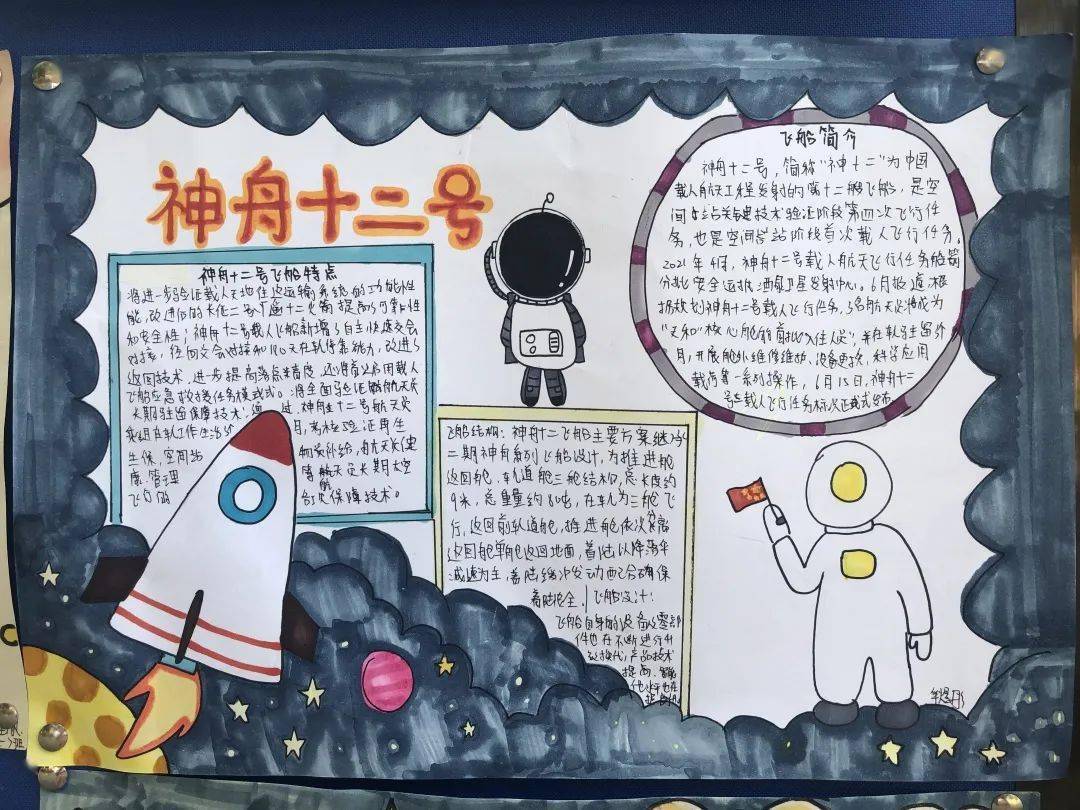 神舟十二号
神舟十二号飞船特点
将进一步验证载人天地往返运输系统的功能性
能,改进后的长征二号F遥十二火箭提高了可靠性
和安全性;神舟十二号载人飞船新增了自主快速交会
对接,径向交会对接和180天在轨停靠能力,改进了
返回技术,进步提高落点精度,还将首次启用载人
飞船应急救援任务模式。将全面验证航天员
长期驻留保障技术。通过神舟十二号航天员
乘组在轨工作生活 月,考核验证再生
生保,空间站 物资补给,航天员健
康管理 等航天员长期太空
飞行的 各项保障技术。
飞船结构:神舟十二飞船主要方案继承
二期神舟系列飞船设计,为推进舱
返回舱,轨道舱三舱结构,总长度约
9米,总重量约 8吨,在轨为三舱飞
行,返回前轨道舱,推进舱依次分离
返回舱单舱返回地面,着陆以降落伞
减速为主,着陆缓冲发动 配合确保
着陆安全。飞船设计:
飞船自身的设备及零部
件也在不断进行升
级换代,产品技术
提高,
他水平也在
飞船简介
神舟十二号,简称“神十二”为中国
载人航天工程发射的第十二艘飞船,是空
间站关键技术验证阶段第四次飞行任
务,也是空间站阶段首次载人飞行任务。
2021年4月,神舟十二号载人航天飞行任务船箭
分批安全运抵酒泉卫星发射中心。6月报道,根
据规划神舟十二号载人飞行任务,3名航天员将成为
“天和”核心舱的首批“入住人员”,并在轨驻留3个
月,开展舱外维修维护,设备更换,科学应用
载荷等一系列操作,6月15日,神舟十二
号载人飞行任务标识正式发布